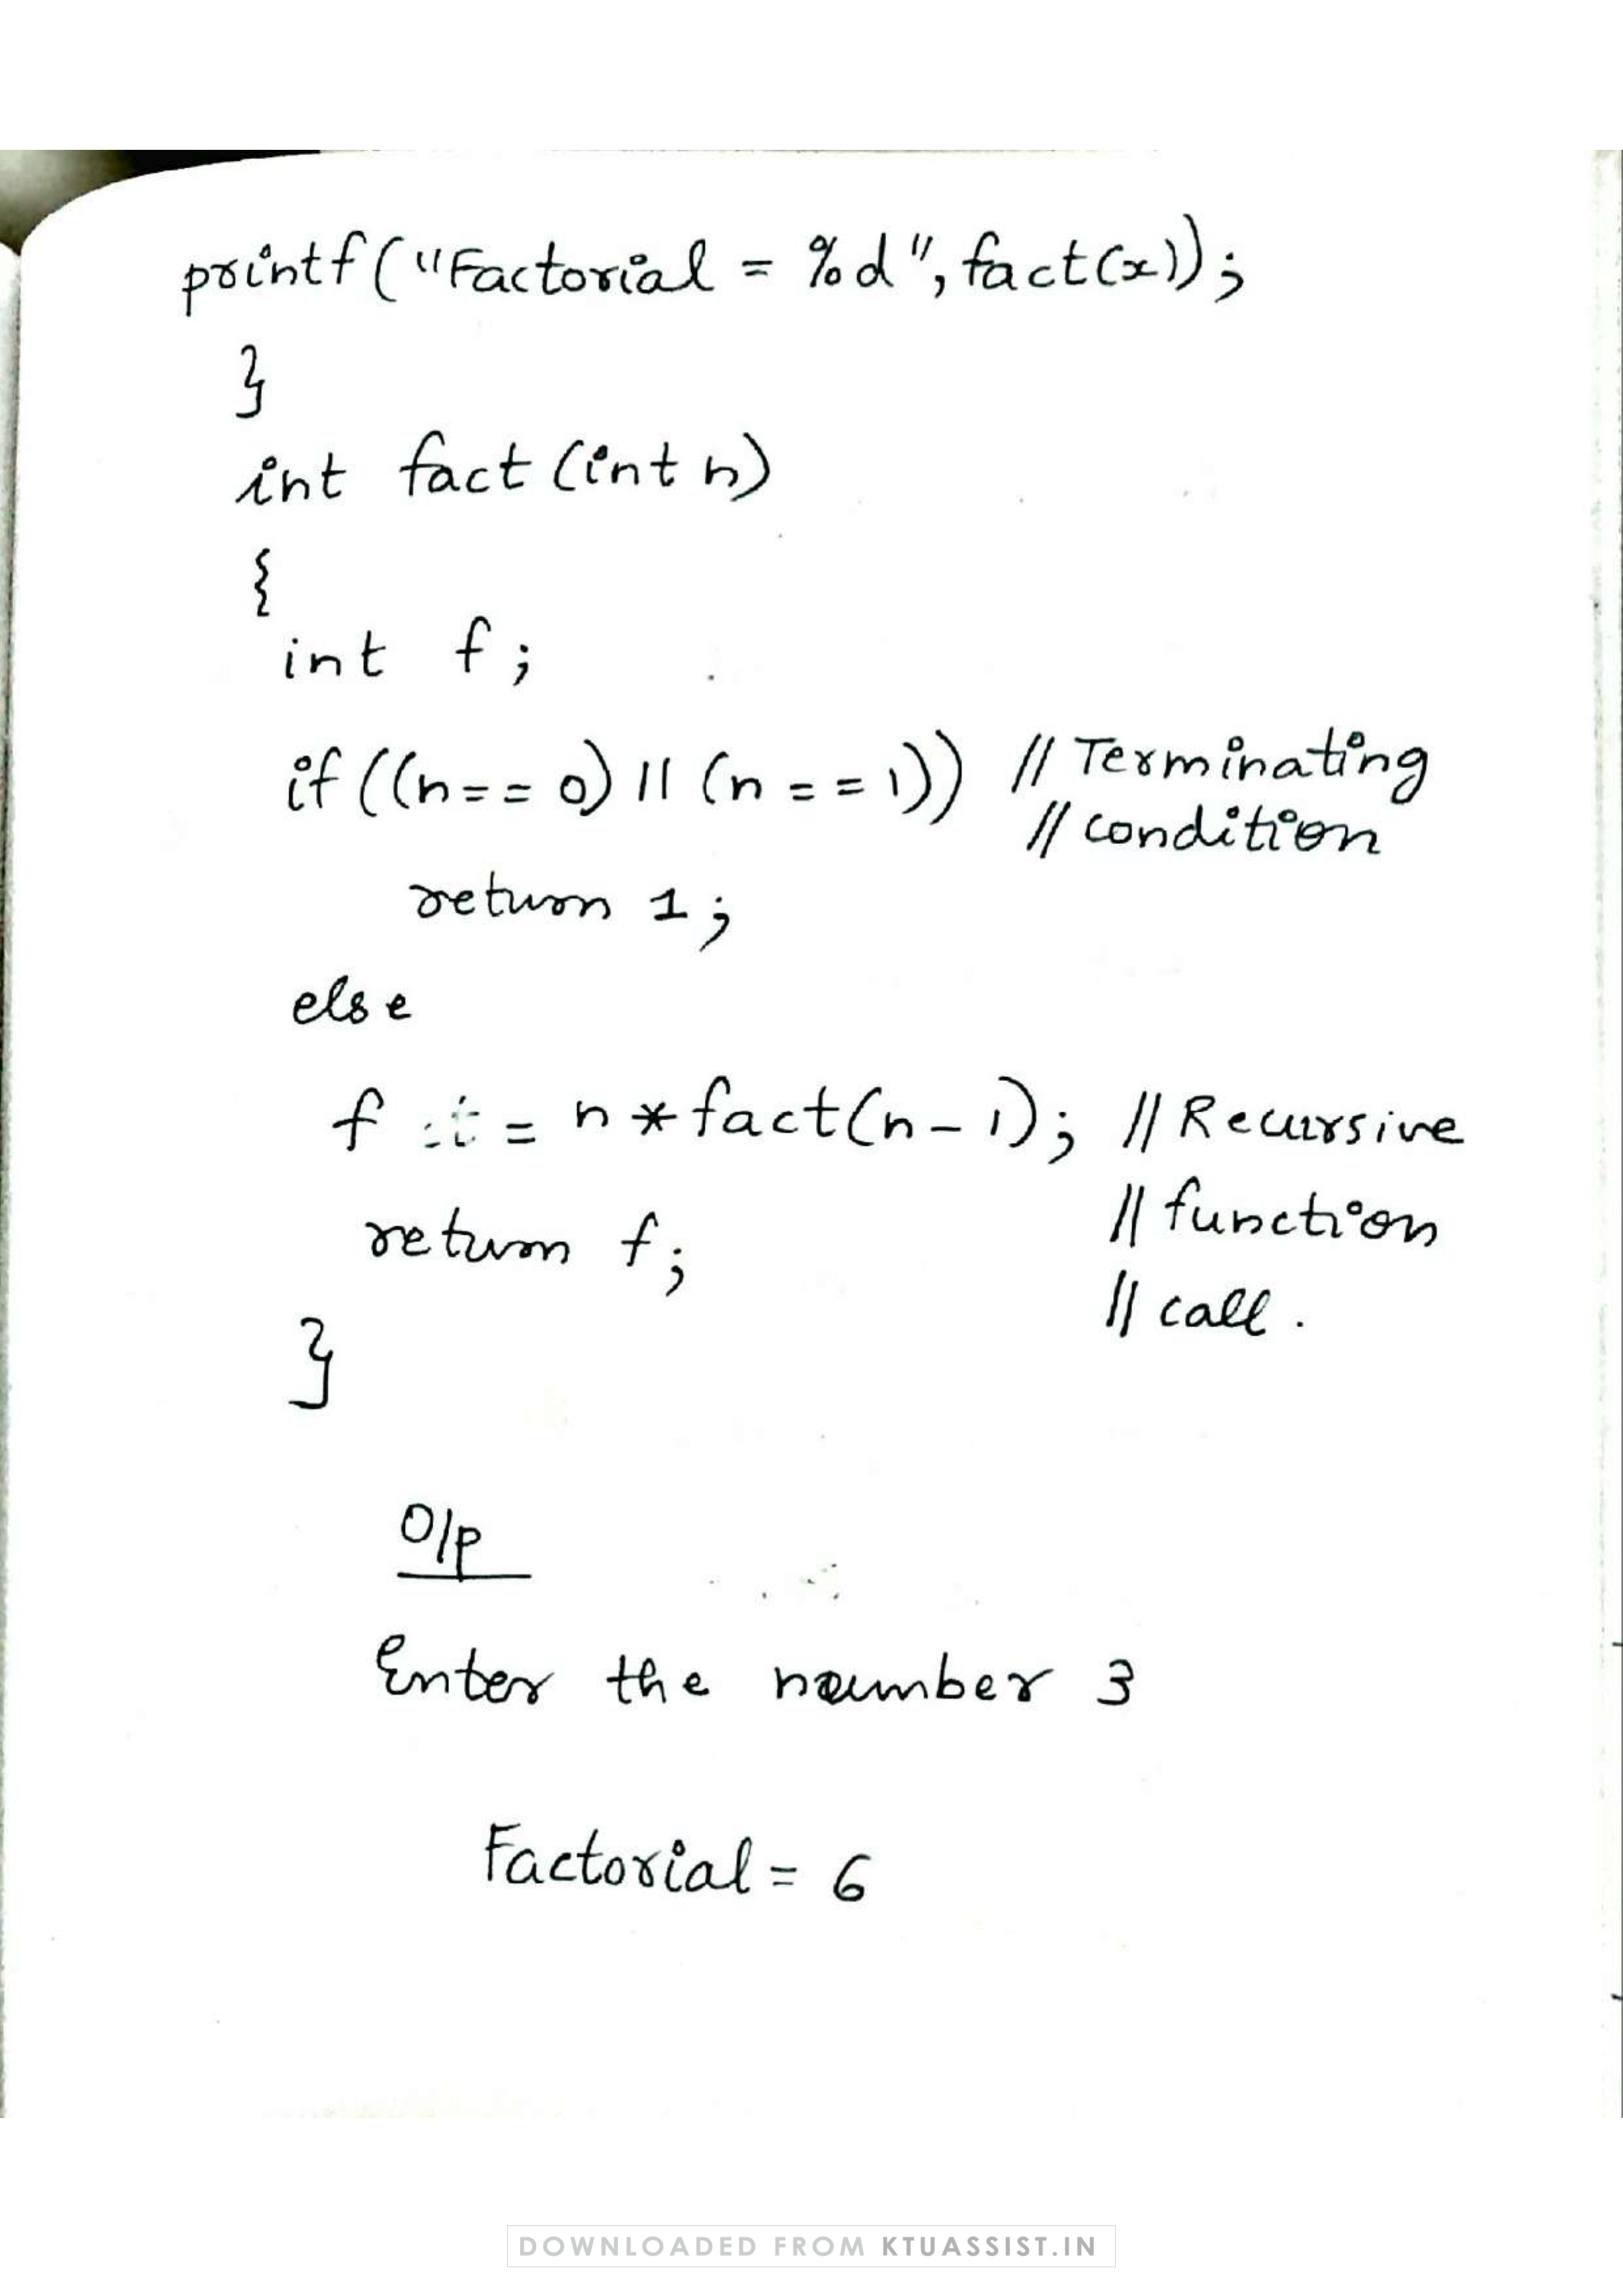 printf("Factorial = %d", fact(x));
}
int fact (int n)
{
int f;
if ((n == 0) || (n == 1)) // Terminating
// condition
return 1;
else
f = n * fact(n-1); // Recursive
// function
return f;
// call.
}
O/p
Enter the number 3
Factorial = 6
DOWNLOADED FROM KTUASSIST.IN